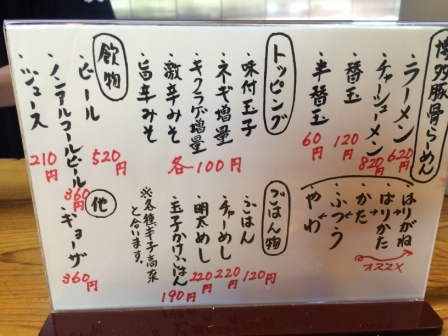 博多豚骨らーめん
・ラーメン 620円
・チャーシューメン 820円
・替玉 120円
・半替玉 60円
・はりがね
・ばりかた
・かた
・ふつう
・やわ
オススメ
トッピング
・味付玉子
・ネギ増量
・キクラゲ増量
・激辛みそ
・旨辛みそ
各100円
ごはん物
・ごはん 120円
・チャーめし 220円
・明太めし 220円
・玉子かけごはん 190円
※各種辛子高菜
と合います。
飲物
・ビール 520円
・ノンアルコールビール 360円
・ジュース 210円
他
ギョーザ 360円